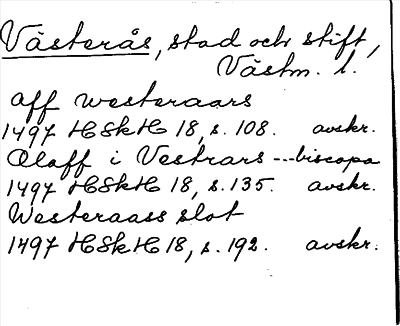 Västerås, stad och stift,
Västm. l.
aff westeraars
1497 HSkH 18, s. 108. avskr.
Olaff i Vestrars --- biscopa
1497 HSkH 18, s. 135. avskr.
Westeraass slot
1497 HSkH 18, s. 192. avskr.